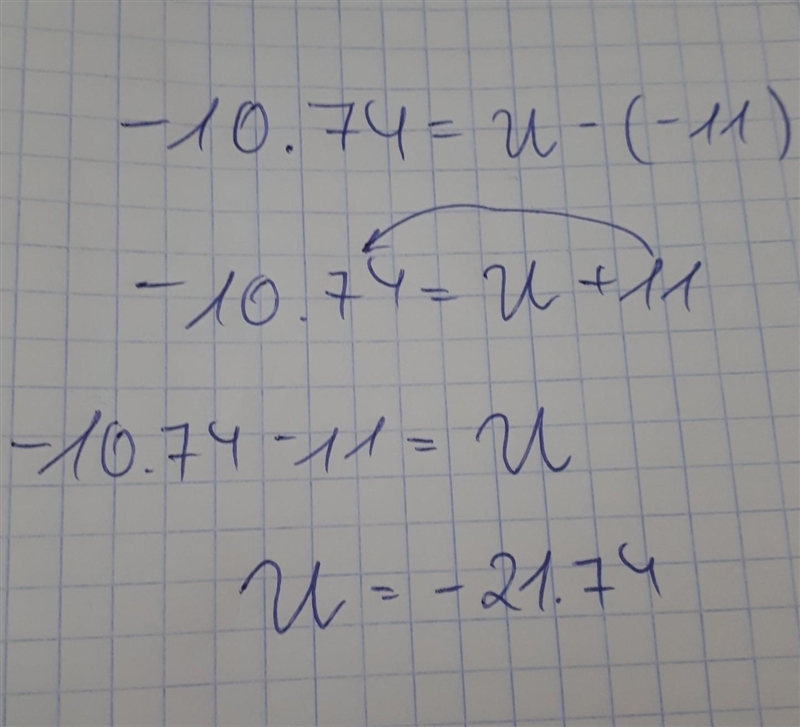 -10.74 = u - (-11)
-10.74 = u + 11
-10.74 - 11 = u
u = -21.74